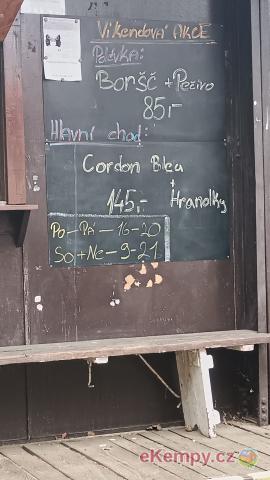 Víkendová AKCE
Polévka:
Boršč + Pečivo
85,-
Hlavní chod:
Cordon Bleu
+
145,- Hranolky
Po-Pá-16-20
So+Ne-9-21
eKempy.cz